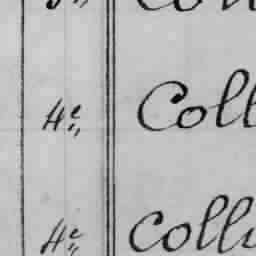 4e Coll
4e Colli